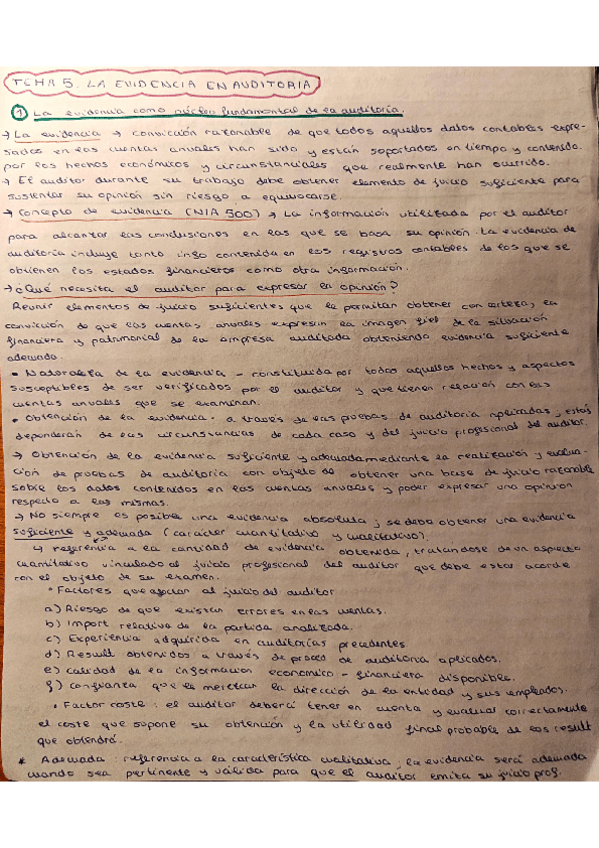 TEMA 5. LA EVIDENCIA EN AUDITORIA
① La evidencia como núcleo fundamental de la auditoría.
→ La evidencia → convicción razonable de que todos aquellos datos contables expre-
sados en las cuentas anuales han sido y están soportados en tiempo y contenido.
por los hechos económicos y circunstanciales que realmente han ocurrido.
→ El auditor durante su trabajo debe obtener elemento de juicio suficiente para
sustentar su opinión sin riesgo a equivocarse.
→ Concepto de evidencia (NIA 500) → La información utilizada por el auditor
para alcanzar las conclusiones en las que se basa su opinión. La evidencia de
auditoria incluye tanto info contenida en los registros contables de los que se
obtienen los estados financieros como otra información.
→ ¿Qué necesita el auditor para expresar la opinión?
Reunir elementos de juicio suficientes que le permitan obtener con certeza, la
convicción de que las cuentas anuales expresan la imagen fiel de la situación
financiera y patrimonial de la empresa auditada obteniendo evidencia suficiente
adecuada.
• Naturaleza de la evidencia - constituida por todos aquellos hechos y aspectos
susceptibles de ser verificados por el auditor y que tienen relación con las
cuentas anuales que se examinan.
• Obtención de la evidencia - a través de las pruebas de auditoria aplicadas, estas
dependerán de las circunstancias de cada caso y del juicio profesional del auditor.
→ Obtención de la evidencia suficiente y adecuada mediante la realización y evalua-
ción de pruebas de auditoria con objeto de obtener una base de juicio razonable
sobre los datos contenidos en las cuentas anuales y poder expresar una opinion
respecto a las mismas.
→ No siempre es posible una evidencia absoluta; se debe obtener una evidencia
suficiente y adecuada (caracter cuantitativo y cualitativo).
↳ referencia a la cantidad de evidencia obtenida, tratandose de un aspecto
cuantitativo vinculado al juicio profesional del auditor que debe estar acorde
con el objeto de su examen.
• Factores que afectan al juicio del auditor
a) Riesgo de que existan errores en las cuentas.
b) Import relativa de la partida analizada.
c) Experiencia adquirida en auditorías precedentes
d) Result obtenidos a través de proced de auditoria aplicados.
e) calidad de la informacion economico - financiera disponible.
f) confianza que le merezcan la dirección de la entidad y sus empleados.
• Factor coste: el auditor deberá tener en cuenta y evaluar correctamente
el coste que supone su obtención y la utilidad final probable de los result
que obtendrá.
* Adecuada: referencia a la característica cualitativa, la evidencia será adecuada
cuando sea pertinente y válida para que el auditor emita su juicio prof.